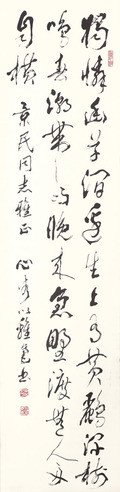 獨憐幽草澗邊生上有黃鸝深樹
鳴春潮帶雨晚來急野渡無人舟
自橫 景民同志雅正 書